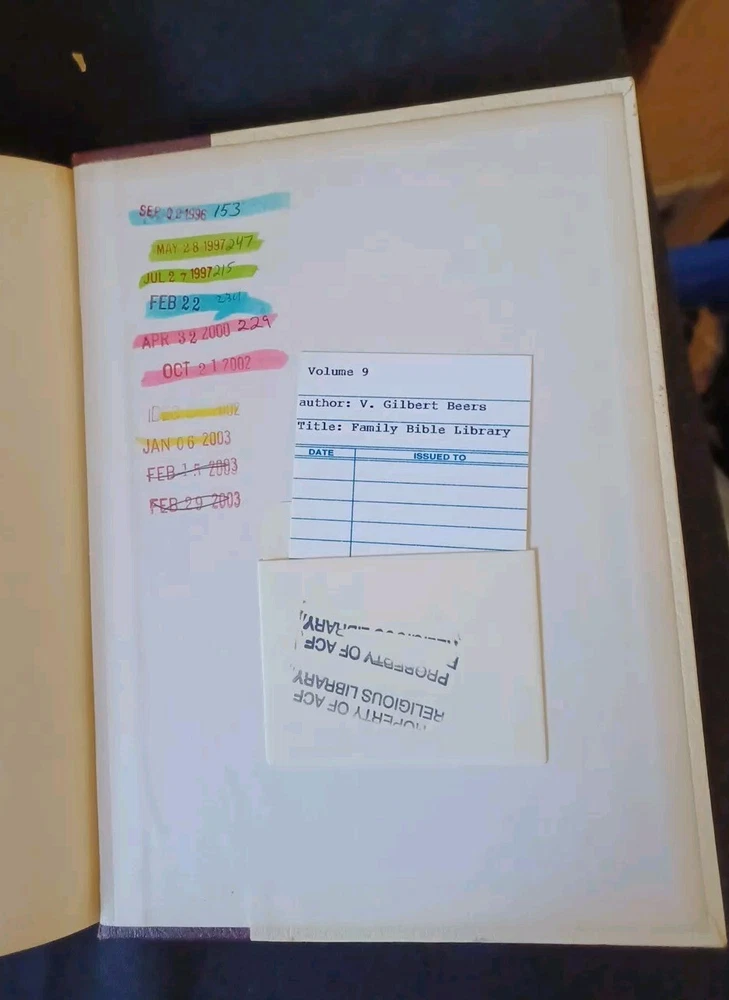 SEP 02 1996 153
MAY 28 1997 247
JUL 27 1997 215
FEB 22
APR 32 2000 229
OCT 21 2002
JAN 06 2003
FEB 15 2003
FEB 29 2003
Volume 9
author: V. Gilbert Beers
Title: Family Bible Library
DATE ISSUED TO
PROPERTY OF ACF
RELIGIOUS LIBRARY,
PROPERTY OF ACF